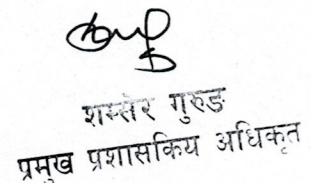 शमसेर गुरुङ
प्रमुख प्रशासकिय अधिकृत